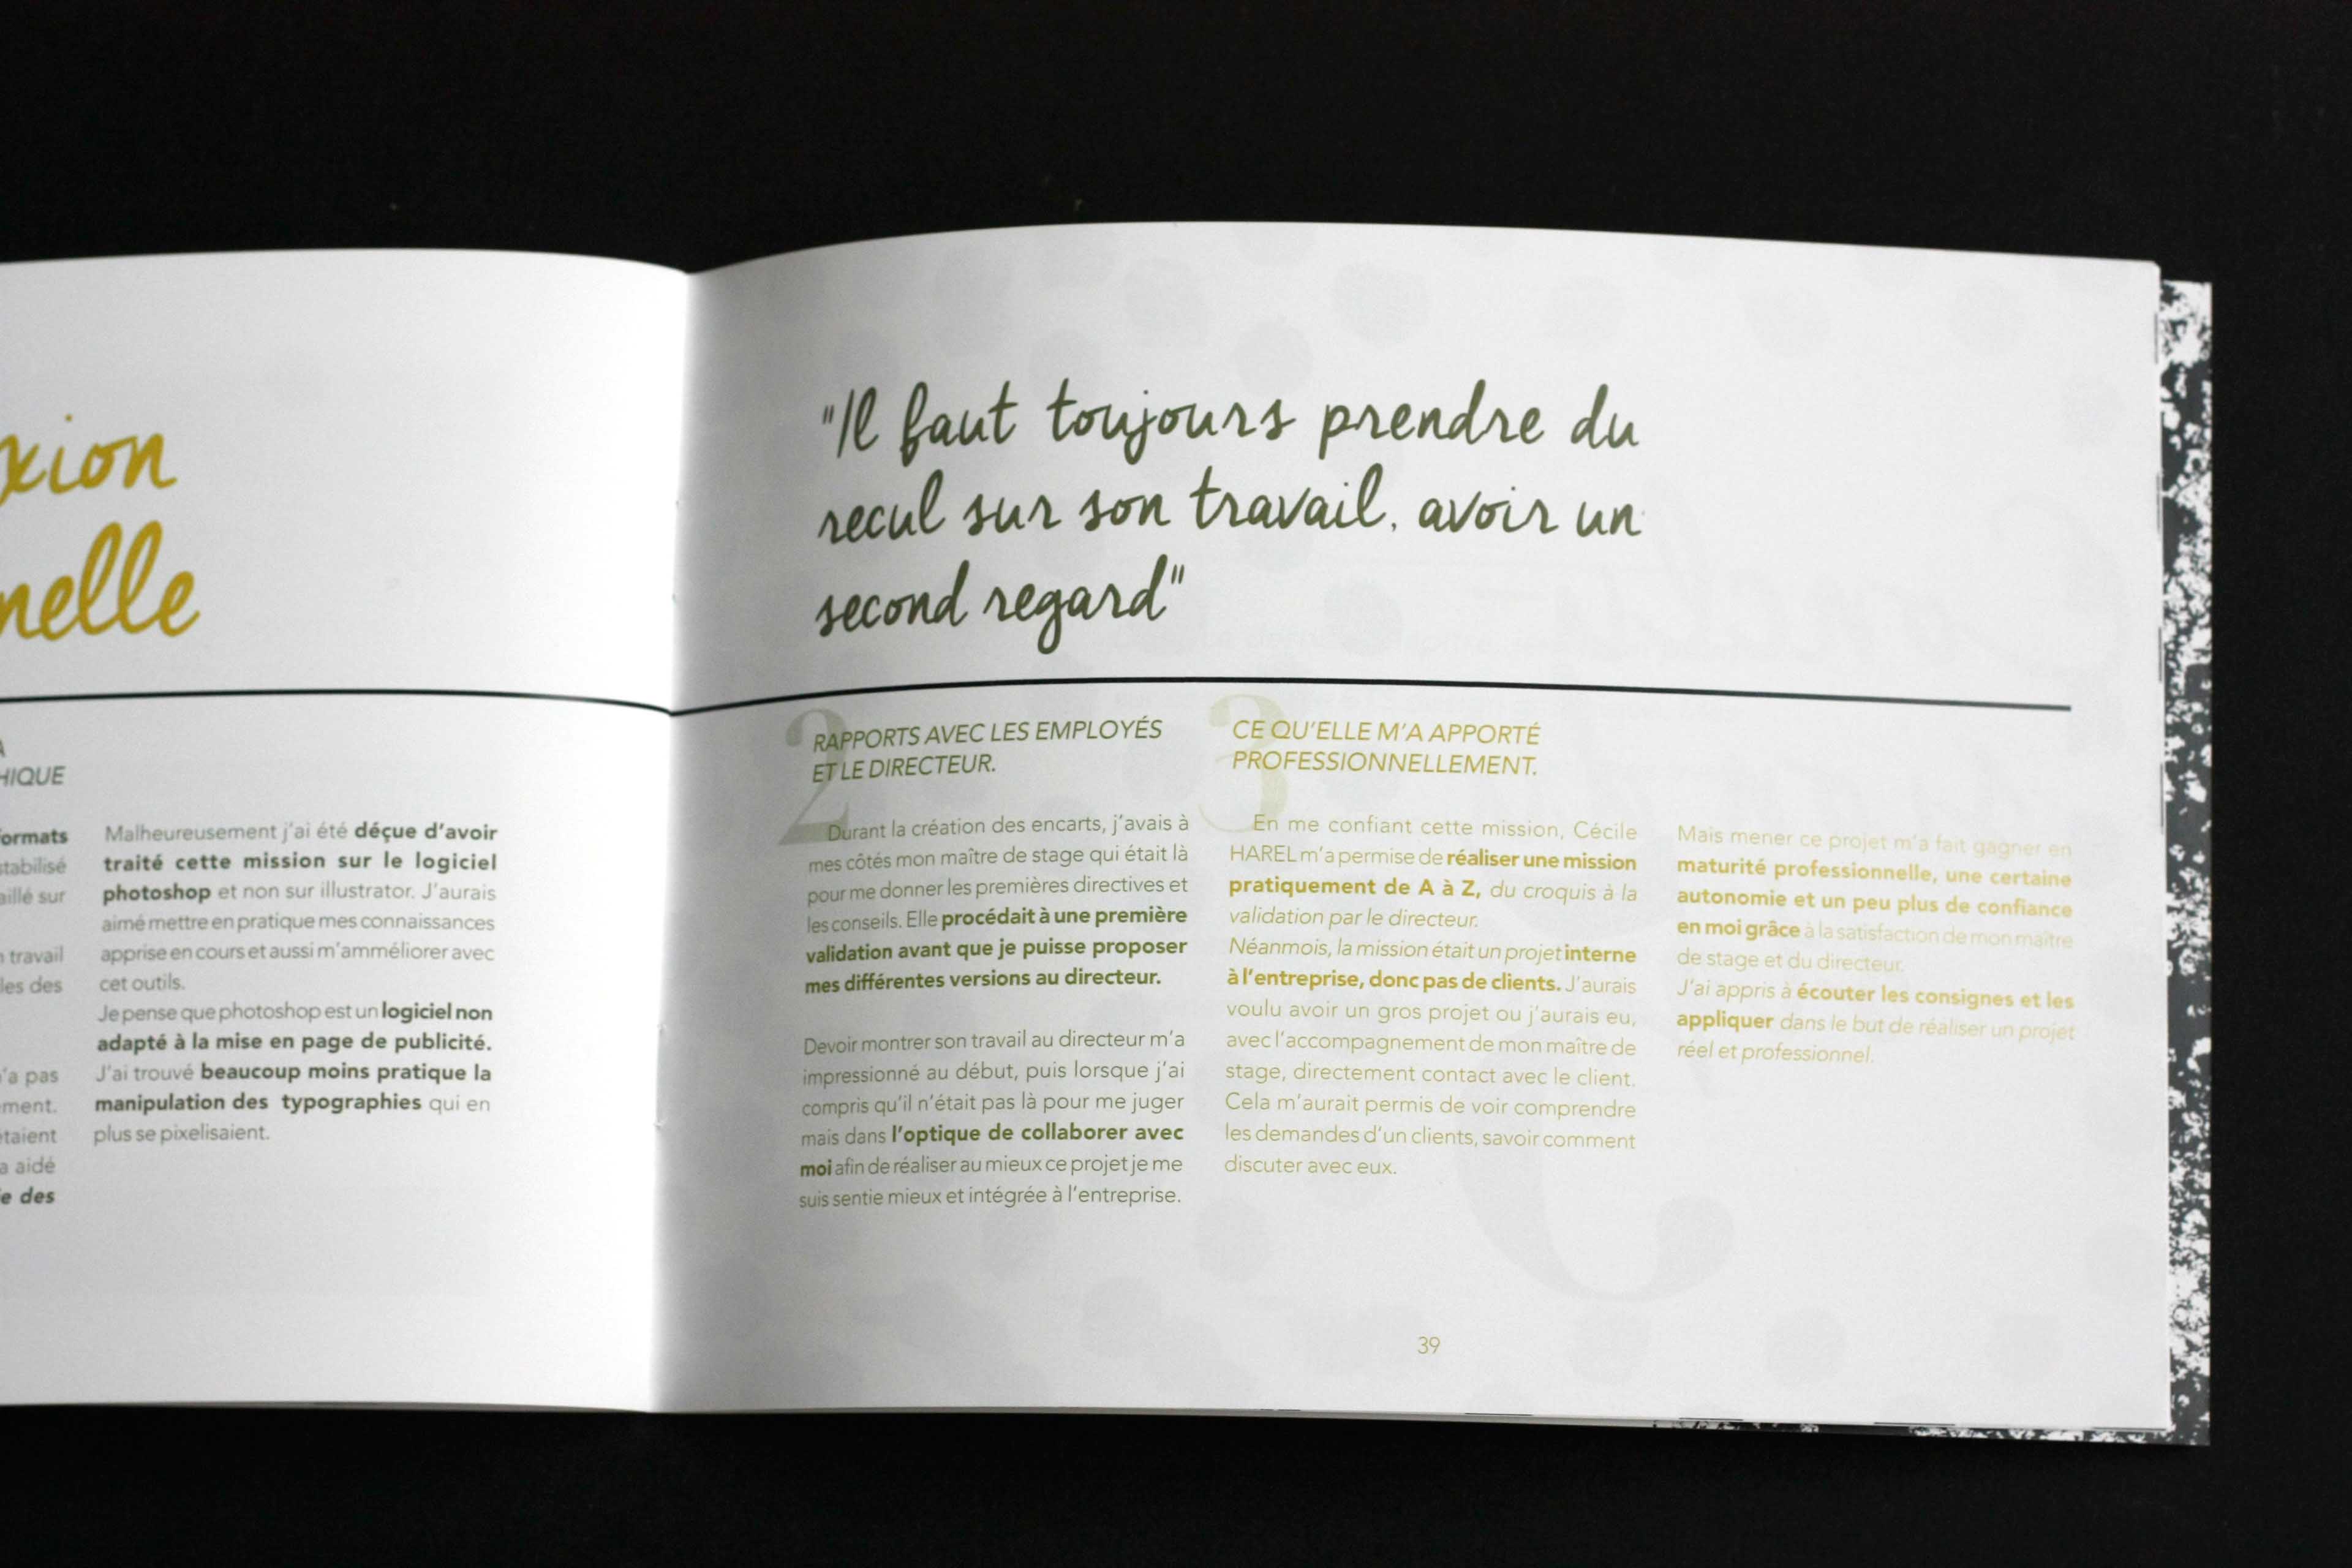 xion
nelle
A
HIQUE
formats
stabilisé
aillé sur
travail
les des
'a pas
ment.
étaient
a aidé
e des
Malheureusement j'ai été déçue d'avoir
traité cette mission sur le logiciel
photoshop et non sur illustrator. J'aurais
aimé mettre en pratique mes connaissances
apprise en cours et aussi m'amméliorer avec
cet outils.
Je pense que photoshop est un logiciel non
adapté à la mise en page de publicité.
J'ai trouvé beaucoup moins pratique la
manipulation des typographies qui en
plus se pixelisaient.
"Il faut toujours prendre du
recul sur son travail, avoir un
second regard"
2
RAPPORTS AVEC LES EMPLOYÉS
ET LE DIRECTEUR.
Durant la création des encarts, j'avais à
mes côtés mon maître de stage qui était là
pour me donner les premières directives et
les conseils. Elle procédait à une première
validation avant que je puisse proposer
mes différentes versions au directeur.
Devoir montrer son travail au directeur m'a
impressionné au début, puis lorsque j'ai
compris qu'il n'était pas là pour me juger
mais dans l'optique de collaborer avec
moi afin de réaliser au mieux ce projet je me
suis sentie mieux et intégrée à l'entreprise.
3
CE QU'ELLE M'A APPORTÉ
PROFESSIONNELLEMENT.
En me confiant cette mission, Cécile
HAREL m'a permise de réaliser une mission
pratiquement de A à Z, du croquis à la
validation par le directeur.
Néanmois, la mission était un projet interne
à l'entreprise, donc pas de clients. J'aurais
voulu avoir un gros projet ou j'aurais eu,
avec l'accompagnement de mon maître de
stage, directement contact avec le client.
Cela m'aurait permis de voir comprendre
les demandes d'un clients, savoir comment
discuter avec eux.
Mais mener ce projet m'a fait gagner en
maturité professionnelle, une certaine
autonomie et un peu plus de confiance
en moi grâce à la satisfaction de mon maître
de stage et du directeur.
J'ai appris à écouter les consignes et les
appliquer dans le but de réaliser un projet
réel et professionnel.
39